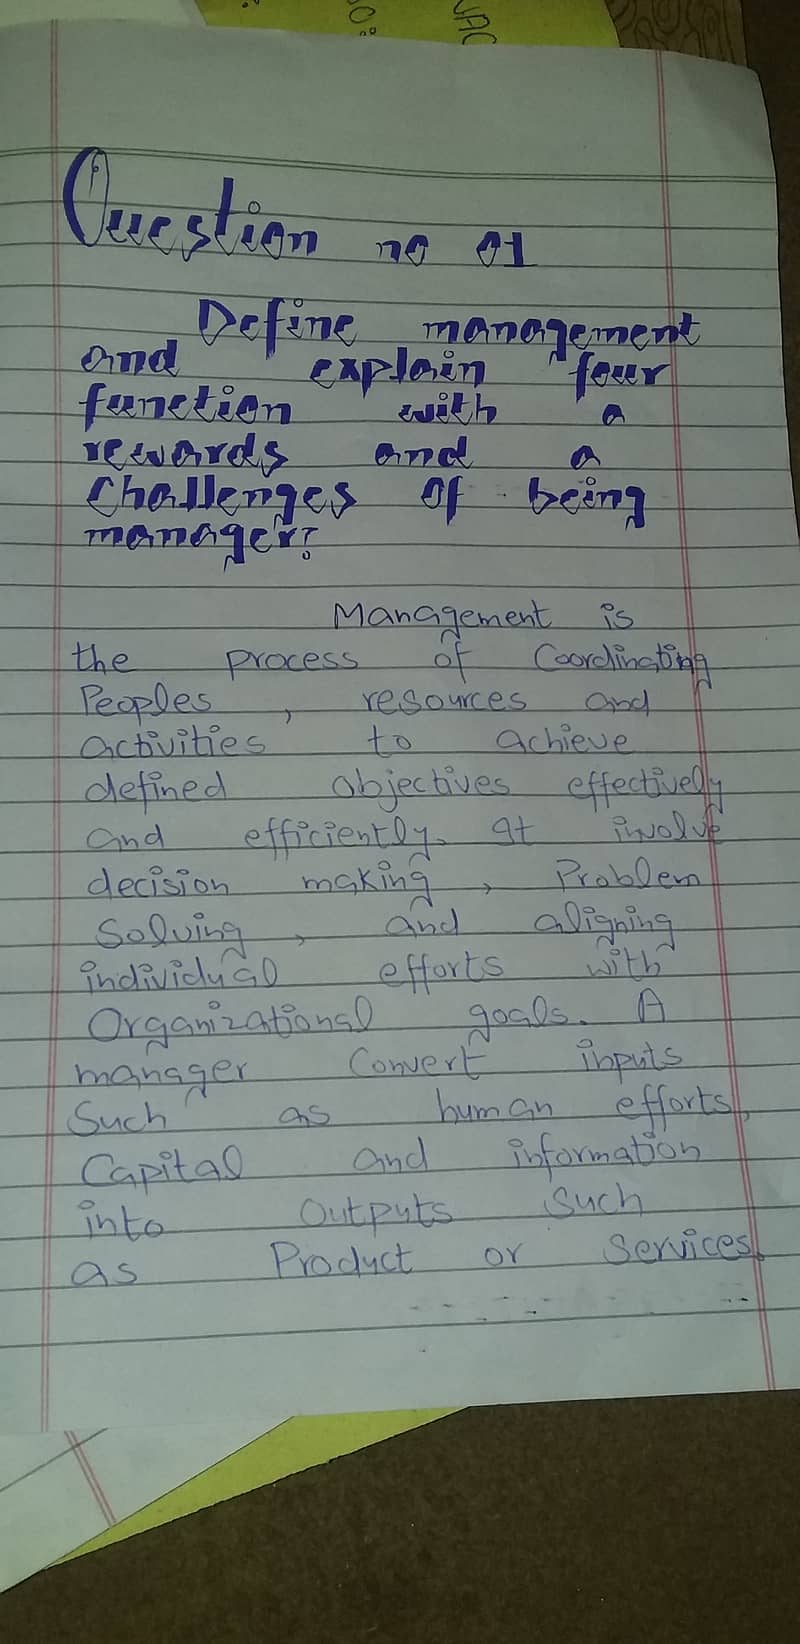 Question no 01
Define management
and explain four
function with a
rewards and a
challenges of being
manager?
Management is
the process of Coordinating
Peoples, resources and
activities to achieve
defined objectives effectively
and efficiently. It involve
decision making, Problem
Solving, and aligning
individual efforts with
Organizational goals. A
manager Convert inputs
Such as human efforts,
Capital and information
into outputs Such
as Product or Services.